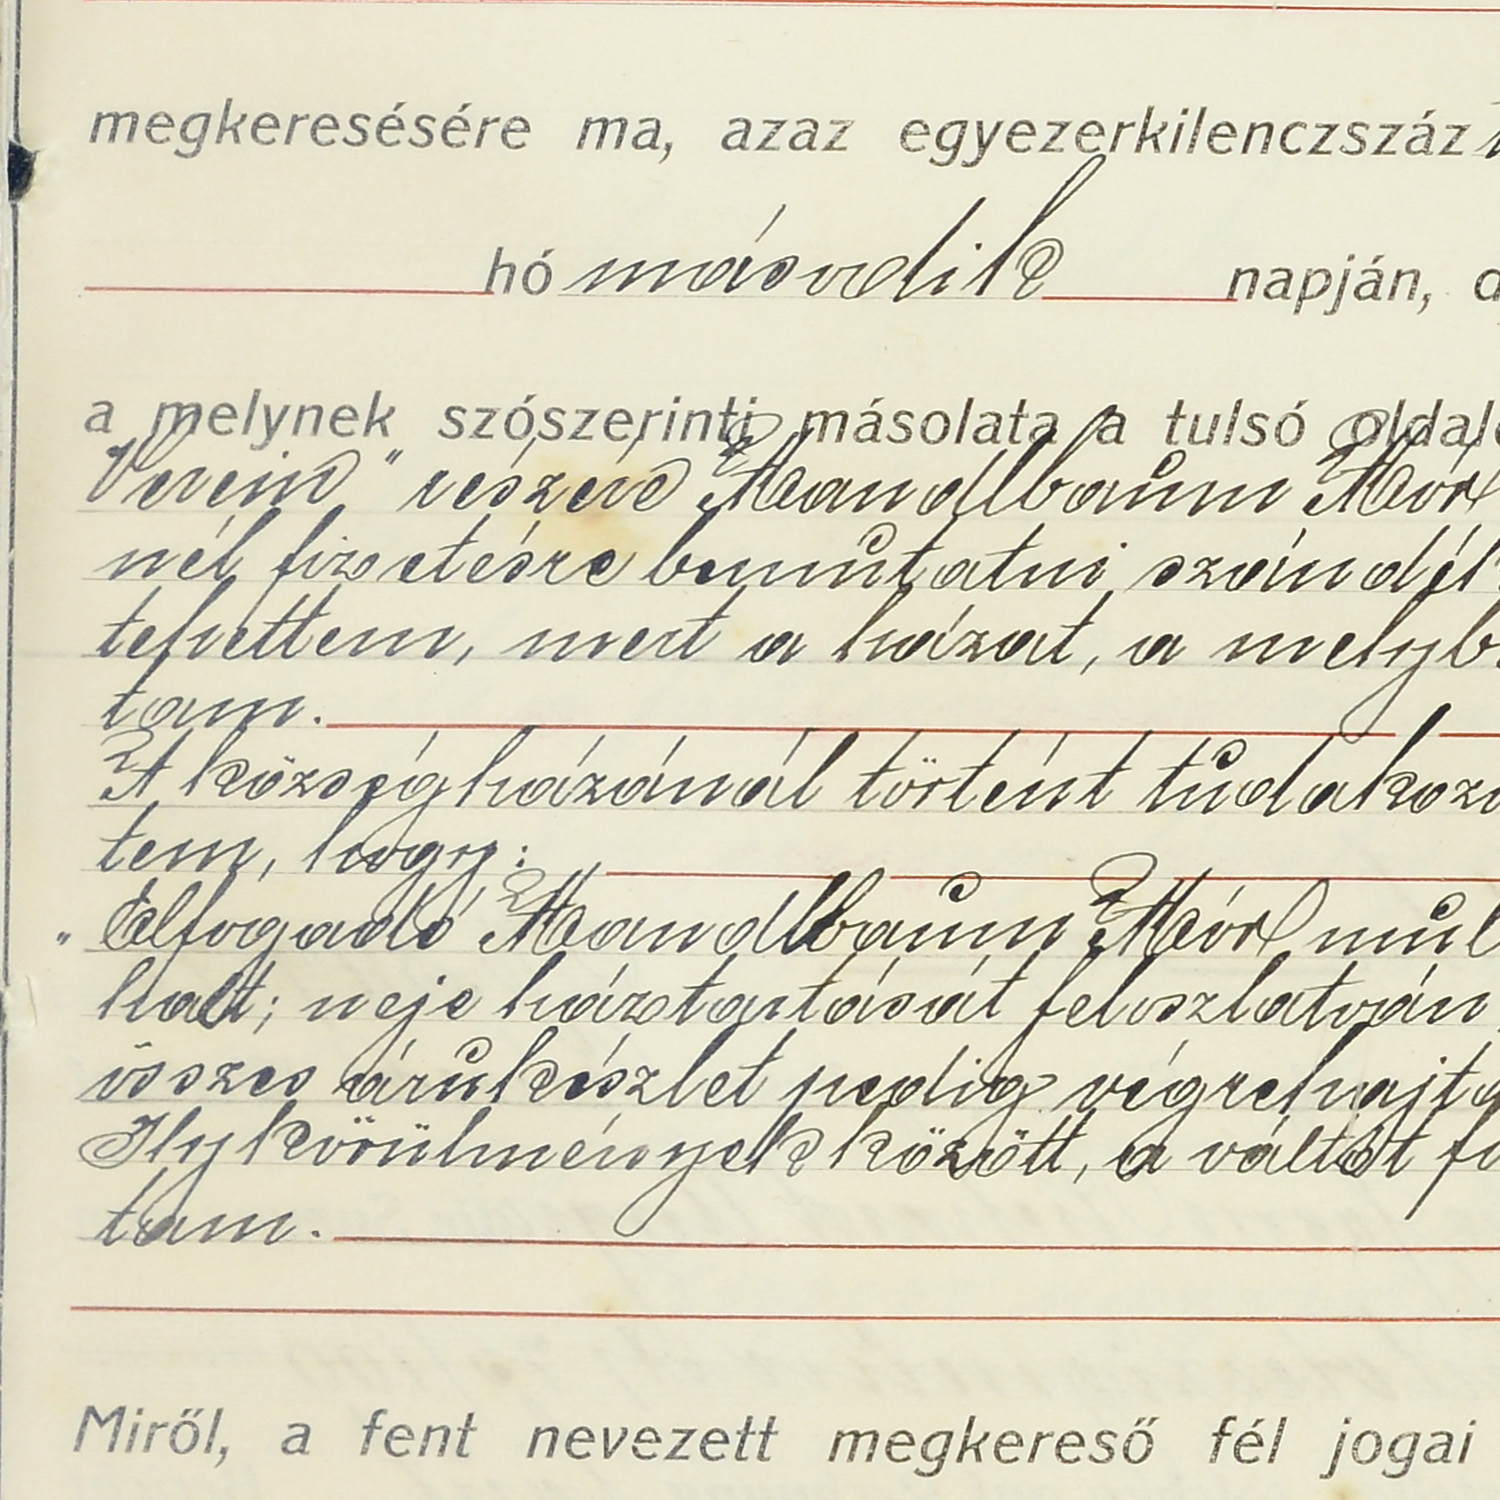 megkeresésére ma, azaz egyezerkilenczszáz
hó második napján,
a melynek szószerinti másolata a tulsó oldal
Verein" részére Mandlbaum Mór
nél fizetésre bemutatni szándék
tehettem, mert a házat, a melyb
tam.
A községházánál történt tudakozó
tem, hogy:
„Elfogadó Mandlbaum Mór mul
halt; neje háztartását feloszlatván,
összes árukészlet pedig végrehajtá
Ily körülmények között, a váltót fi
tam.
Miről, a fent nevezett megkereső fél jogai